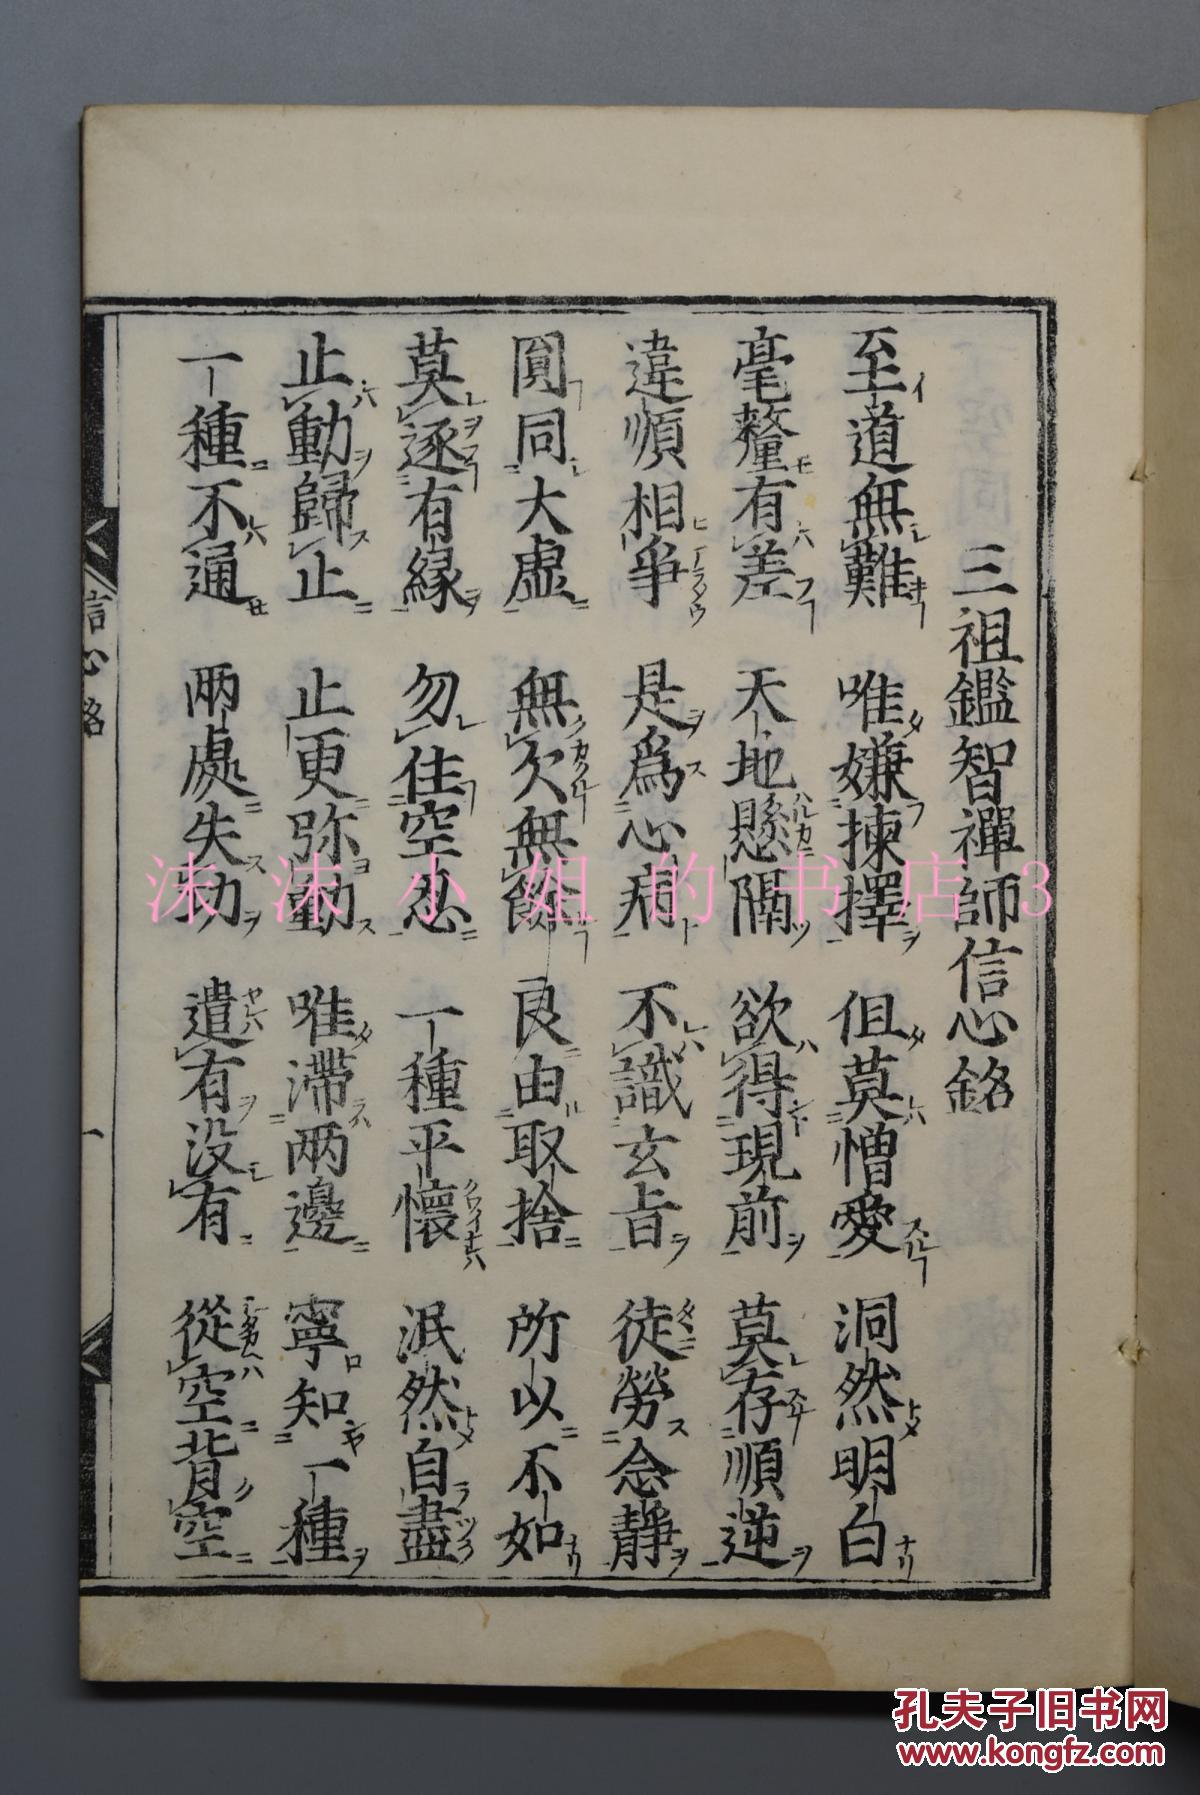 三祖鑑智禪師信心銘
至道無難 唯嫌揀擇 但莫憎愛 洞然明白
毫釐有差 天地懸隔 欲得現前 莫存順逆
違順相爭 是爲心病 不識玄旨 徒勞念靜
圓同大虛 無欠無餘 良由取捨 所以不如
莫逐有緣 勿住空忍 一種平懷 泯然自盡
止動歸止 止更弥動 唯滯兩邊 寧知一種
一種不通 兩處失功 遣有沒有 從空背空
信心銘
一
沫沫小姐的书店3
孔夫子旧书网
www.kongfz.com